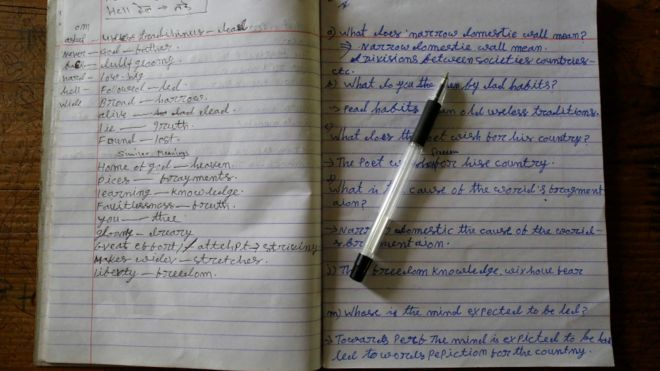 Hell हेल → नर्क
om
useless traditions — dead
Never — God — brother
hard — lose — big
hell — Followed — led
wide Broad — narrow.
alive — dead.
Lie — truth.
Found — lost
Similar Meanings
Home of god — heaven.
Pices — bragments.
learning — knowledge.
Faultlessness — bruth.
you — thee
Gloomy — dreary
Great effort / attehpt → striving
Makes wider — stretches.
liberty — breedom.
a) What does narrow domestic wall mean?
⇒ Narrow domestic wall mean.
divisions between societies countries
etc.
b) What do you the by dad habits?
⇒ Dead habits old useless traditions.
What does the poet wish for his country?
→ The Poet for hise country.
What is the cause of the world's bragment
aion?
→ Narrow domestic the cause of the world
s bragmentaion.
The breedom knowledge, wixhoue bear
m) Whose is the mind expected to be led?
→ Towards Perb The mind is expicted to be
led to words pepiction for the country.